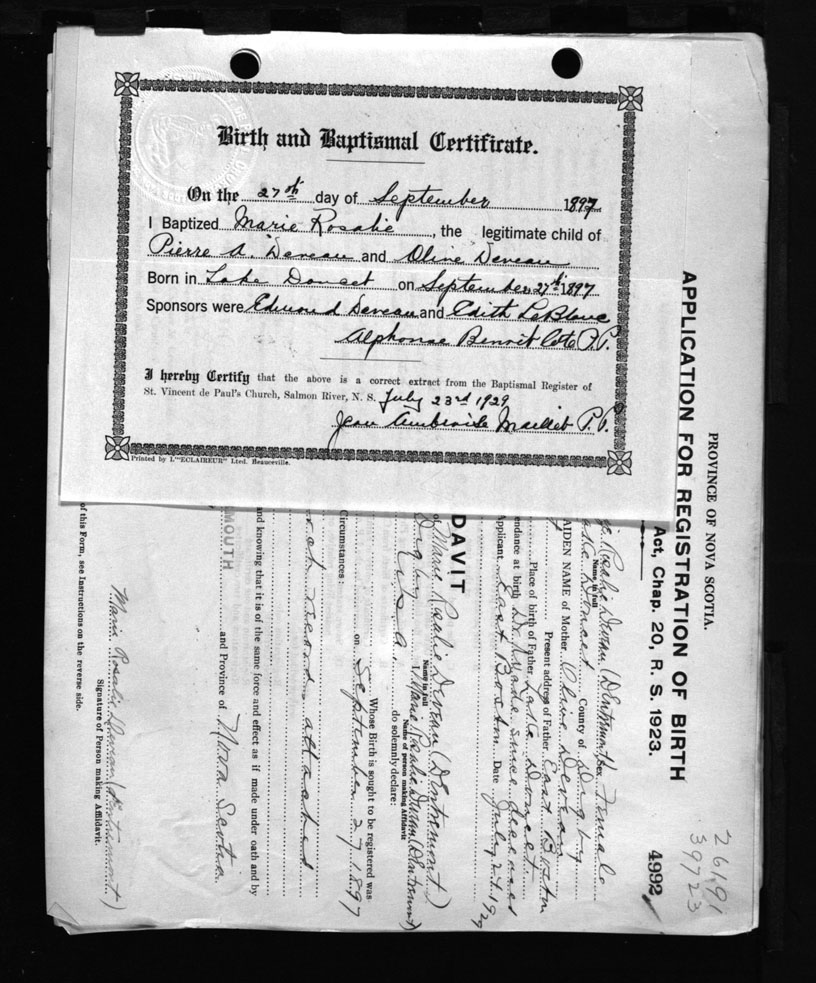 Birth and Baptismal Certificate.
On the 27th day of September 1897
I Baptized Marie Rosalie, the legitimate child of
Pierre A. Deveau and Olive Deveau
Born in Lake Doucet on September 27th 1897
Sponsors were Edmond Deveau and Edith LeBlanc
Alphonse Benoit Cote P.P.
I hereby Certify that the above is a correct extract from the Baptismal Register of
St. Vincent de Paul's Church, Salmon River, N. S. July 23rd 1929
Jean Ambroise Maillet P.P.
Printed by L'"ECLAIREUR" Ltd. Beauceville.
PROVINCE OF NOVA SCOTIA.
APPLICATION FOR REGISTRATION OF BIRTH
Act, Chap. 20, R. S. 1923.
26191
39723
4992
Rosalie Deveau (D'Entremont) Sex Female
Name in full
Lake Doucet County of Digby
AIDEN NAME of Mother Olive Deveau
Present address of Father East Boston
Place of birth of Father Lake Doucet
endance at birth Dr. Wade since deceased
Applicant East Boston Date July 24, 1929
DAVIT
of Marie Rosalie Deveau (D'Entremont)
Name in full
Digby I, Marie Rosalie Deveau (D'Entremont)
Name of person making Affidavit
U.S.A. do solemnly declare:
Whose Birth is sought to be registered was
on September 27 1897
Circumstances:
record attached
and knowing that it is of the same force and effect as if made under oath and by
MOUTH and Province of Nova Scotia
Marie Rosalie Deveau (D'Entremont)
Signature of Person making Affidavit.
of this Form, see Instructions on the reverse side.